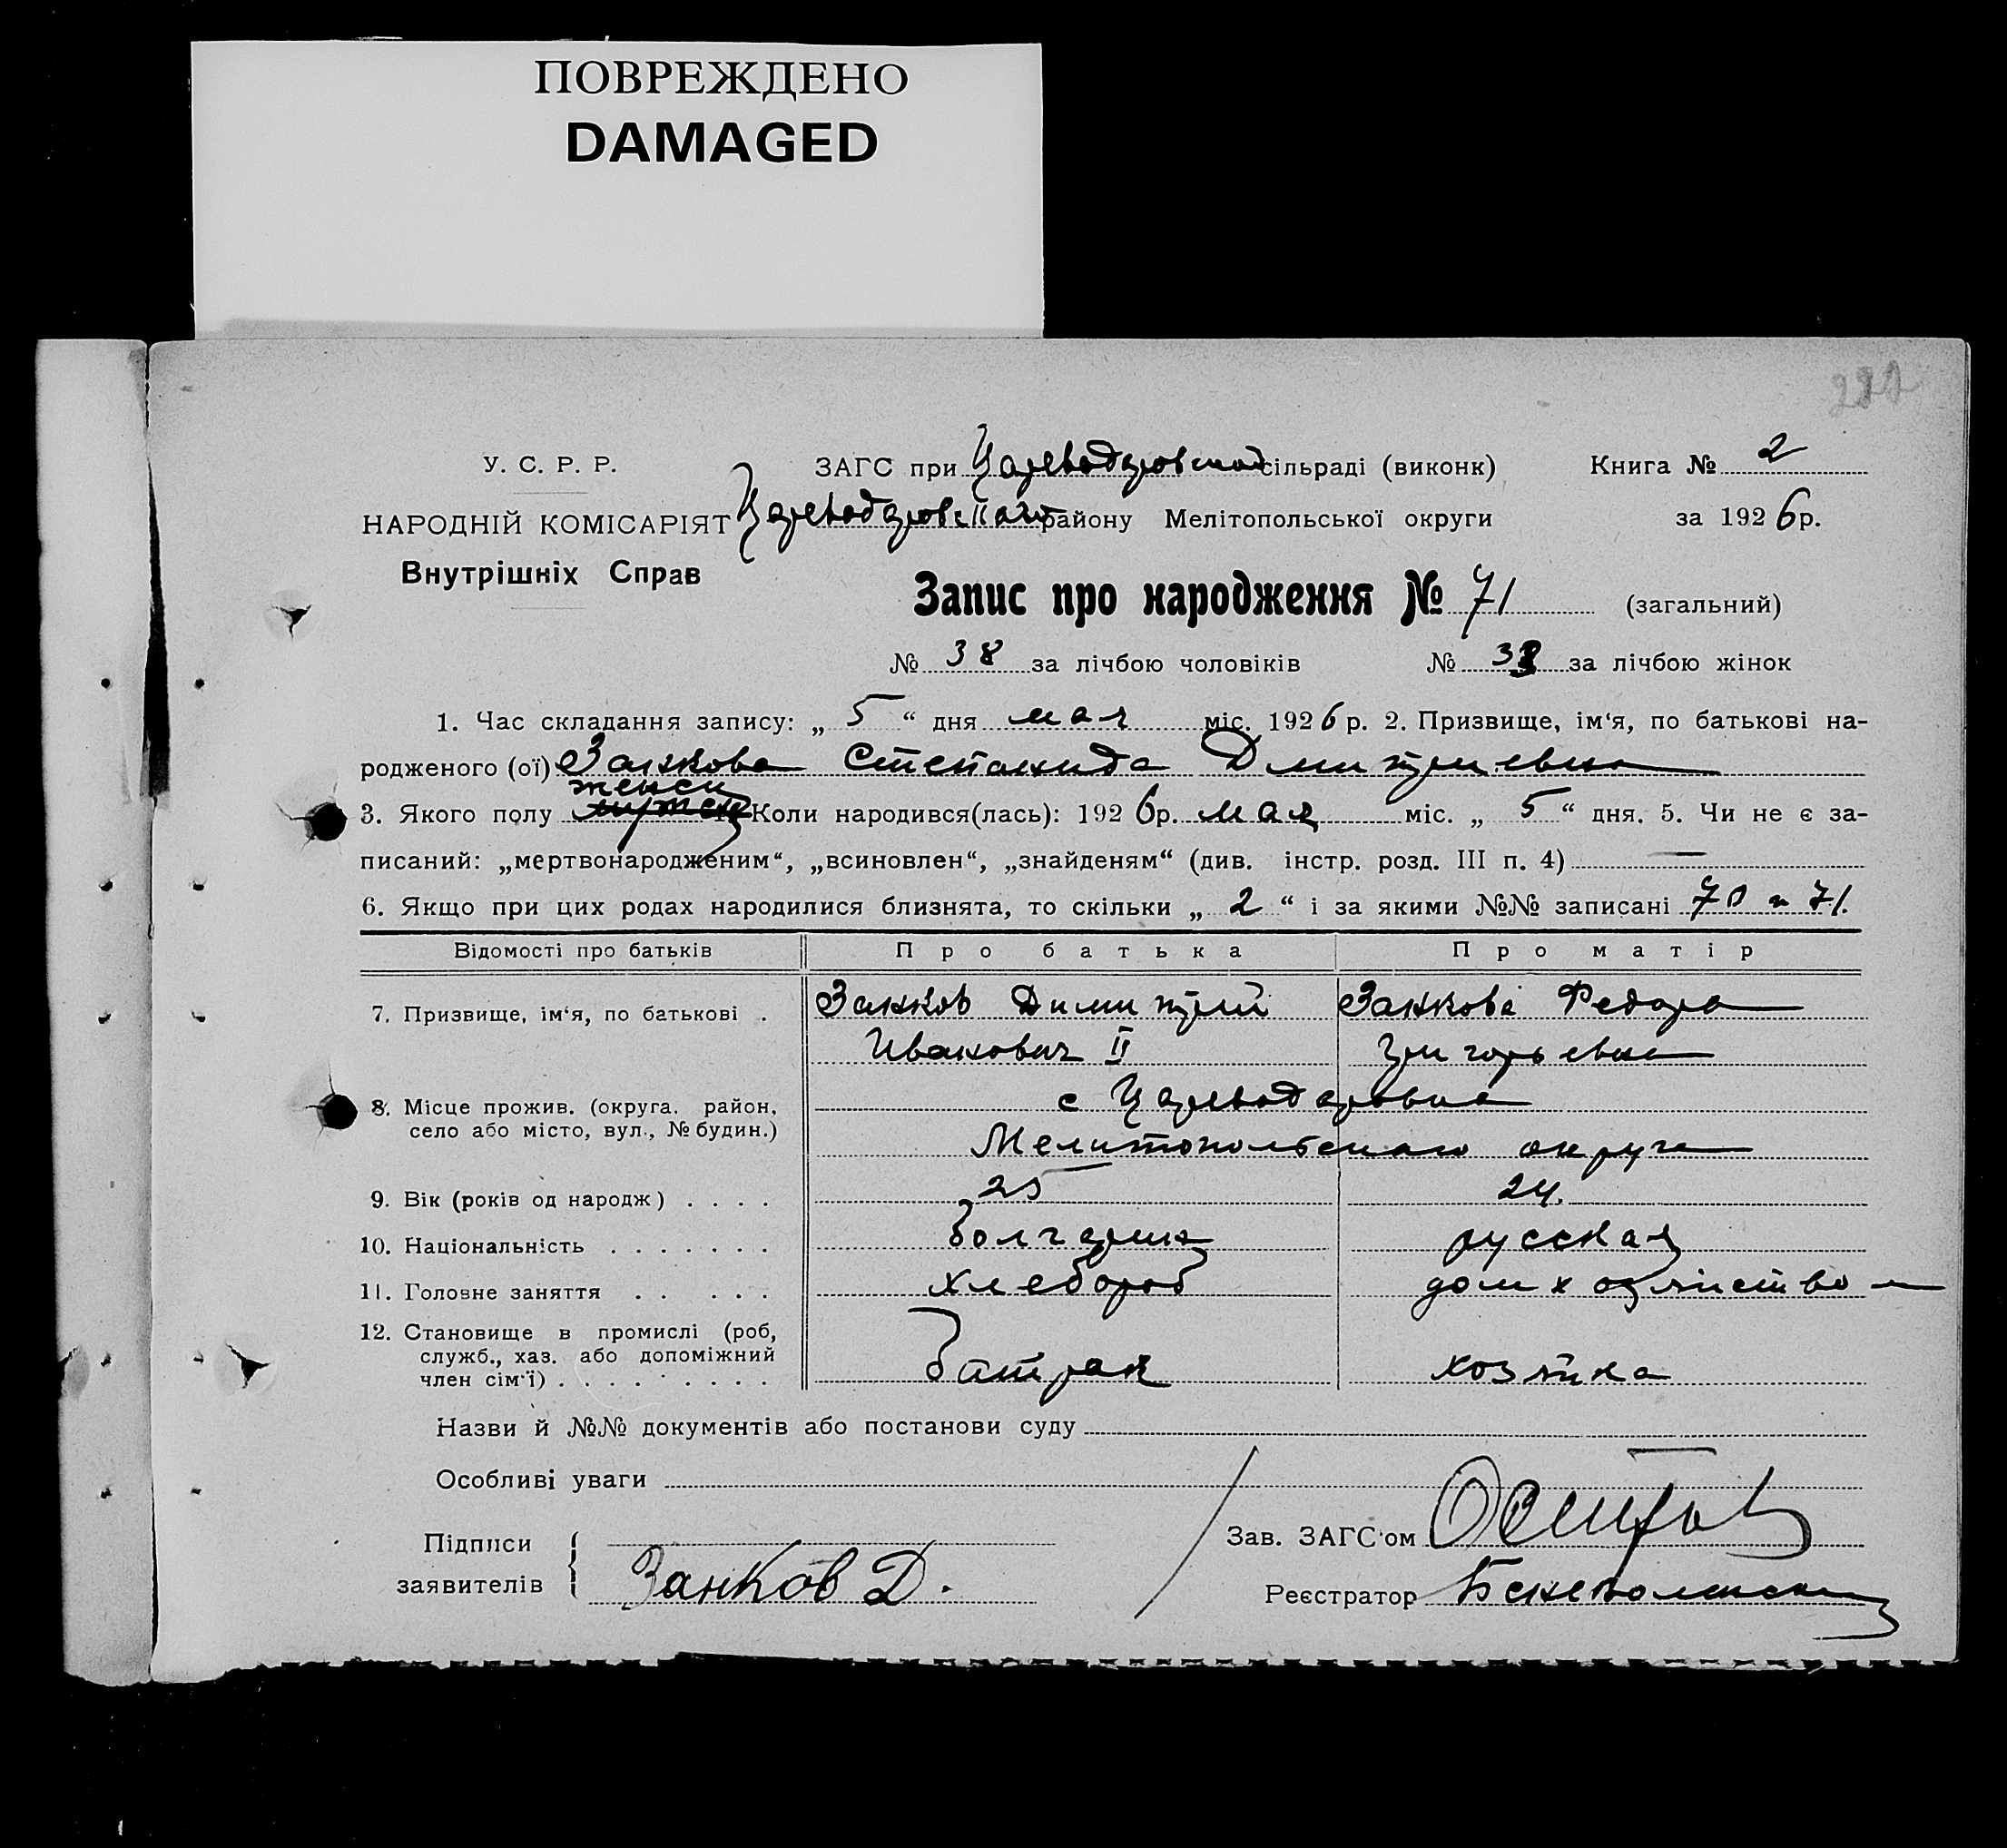 ПОВРЕЖДЕНО
DAMAGED
У. С. Р. Р.
ЗАГС при Цареводаровской сільраді (виконк)
Книга № 2
НАРОДНІЙ КОМІСАРІЯТ
Цареводаровского району Мелітопольської округи
за 1926 р.
Внутрішніх Справ
Запис про народження № 71 (загальний)
№ 38 за лічбою чоловіків № 33 за лічбою жінок
1. Час складання запису: „ 5 “ дня мая міс. 1926 р. 2. Призвище, ім‘я, по батькові на-
родженого (ої) Занкова Степанида Дмитриевна
женск
3. Якого полу Коли народився(лась): 1926р. мая міс. „ 5 “ дня. 5. Чи не є за-
писаний: „мертвонародженим“, „всиновлен“, „знайденям“ (див. інстр. розд. III п. 4) —
6. Якщо при цих родах народилися близнята, то скільки „ 2 “ і за якими №№ записані 70 и 71.
Відомості про батьків Про батька Про матір
7. Призвище, ім‘я, по батькові . Занков Димитрий Занкова Федора
Иванович II Григорьевна
8. Місце прожив. (округа. район, с Цареводаровка
село або місто, вул., № будин.)
Мелитопольского округа
9. Вік (років од народж) . . . . 25 24.
10. Національність . . . . . . . болгарин русская
11. Головне заняття . . . . . хлебороб домхозяйство
12. Становище в промислі (роб,
служб., хаз. або допоміжний
член сім‘ї) . . . . . . . . . батрак хозяйка
Назви й №№ документів або постанови суду
Особливі уваги
Підписи
заявителів
Занков Д.
Зав. ЗАГС‘ом Осипов
Реєстратор